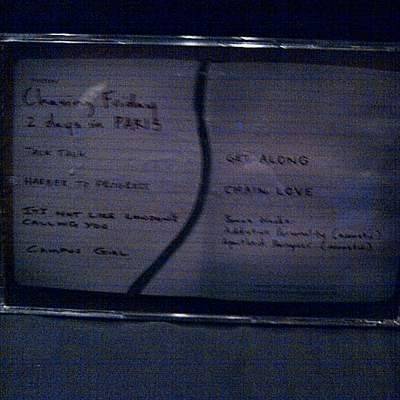 Chasing Friday
2 days in PARIS
TALK TALK
HARDER TO
IT'S NOT LIKE LONDON'S
CALLING YOU
CAMPUS GIRL
GET ALONG
CHAIN LOVE
Addictive Personality (acoustic)
(acoustic)